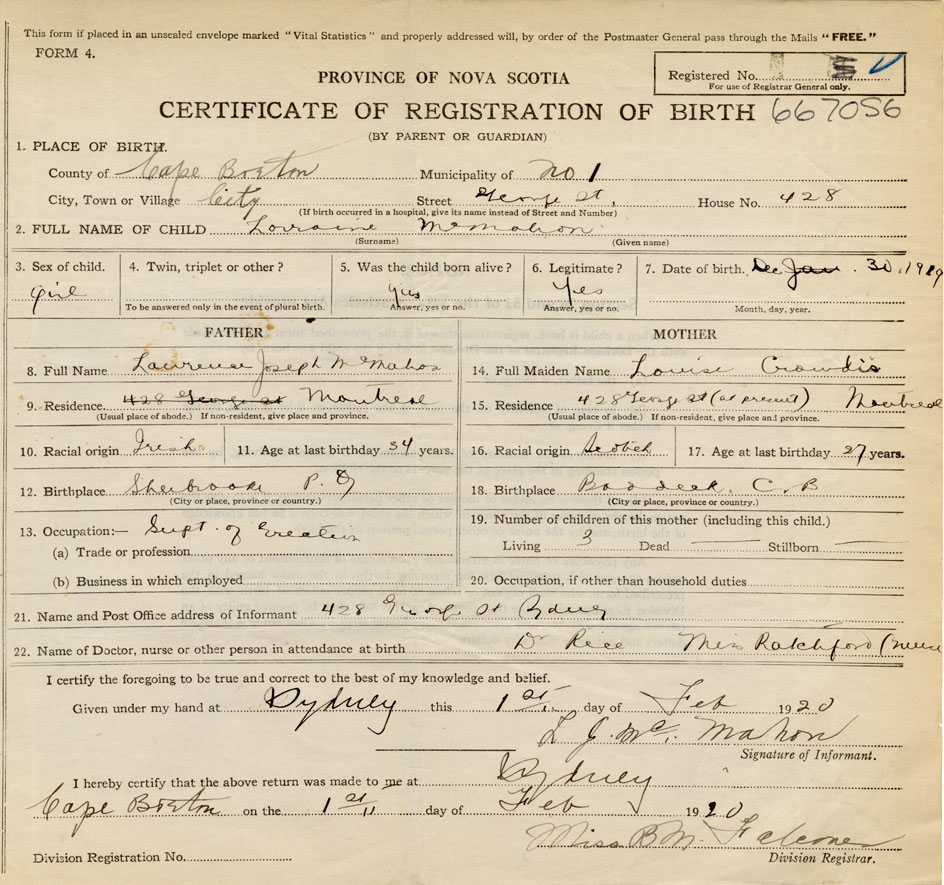 This form if placed in an unsealed envelope marked "Vital Statistics" and properly addressed will, by order of the Postmaster General pass through the Mails "FREE."
FORM 4.
PROVINCE OF NOVA SCOTIA
Registered No.
For use of Registrar General only.
CERTIFICATE OF REGISTRATION OF BIRTH 667056
(BY PARENT OR GUARDIAN)
1. PLACE OF BIRTH.
County of Cape Breton Municipality of No 1
City, Town or Village City Street George St, House No. 428
(If birth occurred in a hospital, give its name instead of Street and Number)
2. FULL NAME OF CHILD Lorraine McMahon
(Surname) (Given name)
3. Sex of child. 4. Twin, triplet or other? 5. Was the child born alive? 6. Legitimate? 7. Date of birth. Dec Jan. 30, 1919
girl yes Yes
To be answered only in the event of plural birth. Answer, yes or no. Answer, yes or no. Month, day, year.
FATHER MOTHER
8. Full Name Lawrence Joseph McMahon 14. Full Maiden Name Louise Crowdis
9. Residence. 428 George St Montreal 15. Residence 428 George St (at present) Montreal
(Usual place of abode.) If non-resident, give place and province. (Usual place of abode.) If non-resident, give place and province.
10. Racial origin Irish 11. Age at last birthday 34 years. 16. Racial origin Scotch 17. Age at last birthday 27 years.
12. Birthplace Sherbrooke P. Q 18. Birthplace Baddeck. C. B
(City or place, province or country.) (City or place, province or country.)
13. Occupation:— Supt. of Erection 19. Number of children of this mother (including this child.)
(a) Trade or profession Living 3 Dead — Stillborn —
(b) Business in which employed 20. Occupation, if other than household duties
21. Name and Post Office address of Informant 428 George St Sydney
22. Name of Doctor, nurse or other person in attendance at birth Dr Rice Miss Ratchford (nurse
I certify the foregoing to be true and correct to the best of my knowledge and belief.
Given under my hand at Sydney this 1st day of Feb 1920
L. J. McMahon
Signature of Informant.
I hereby certify that the above return was made to me at Sydney
Cape Breton on the 1st day of Feb 1920
Miss B M. Falconer
Division Registration No. Division Registrar.